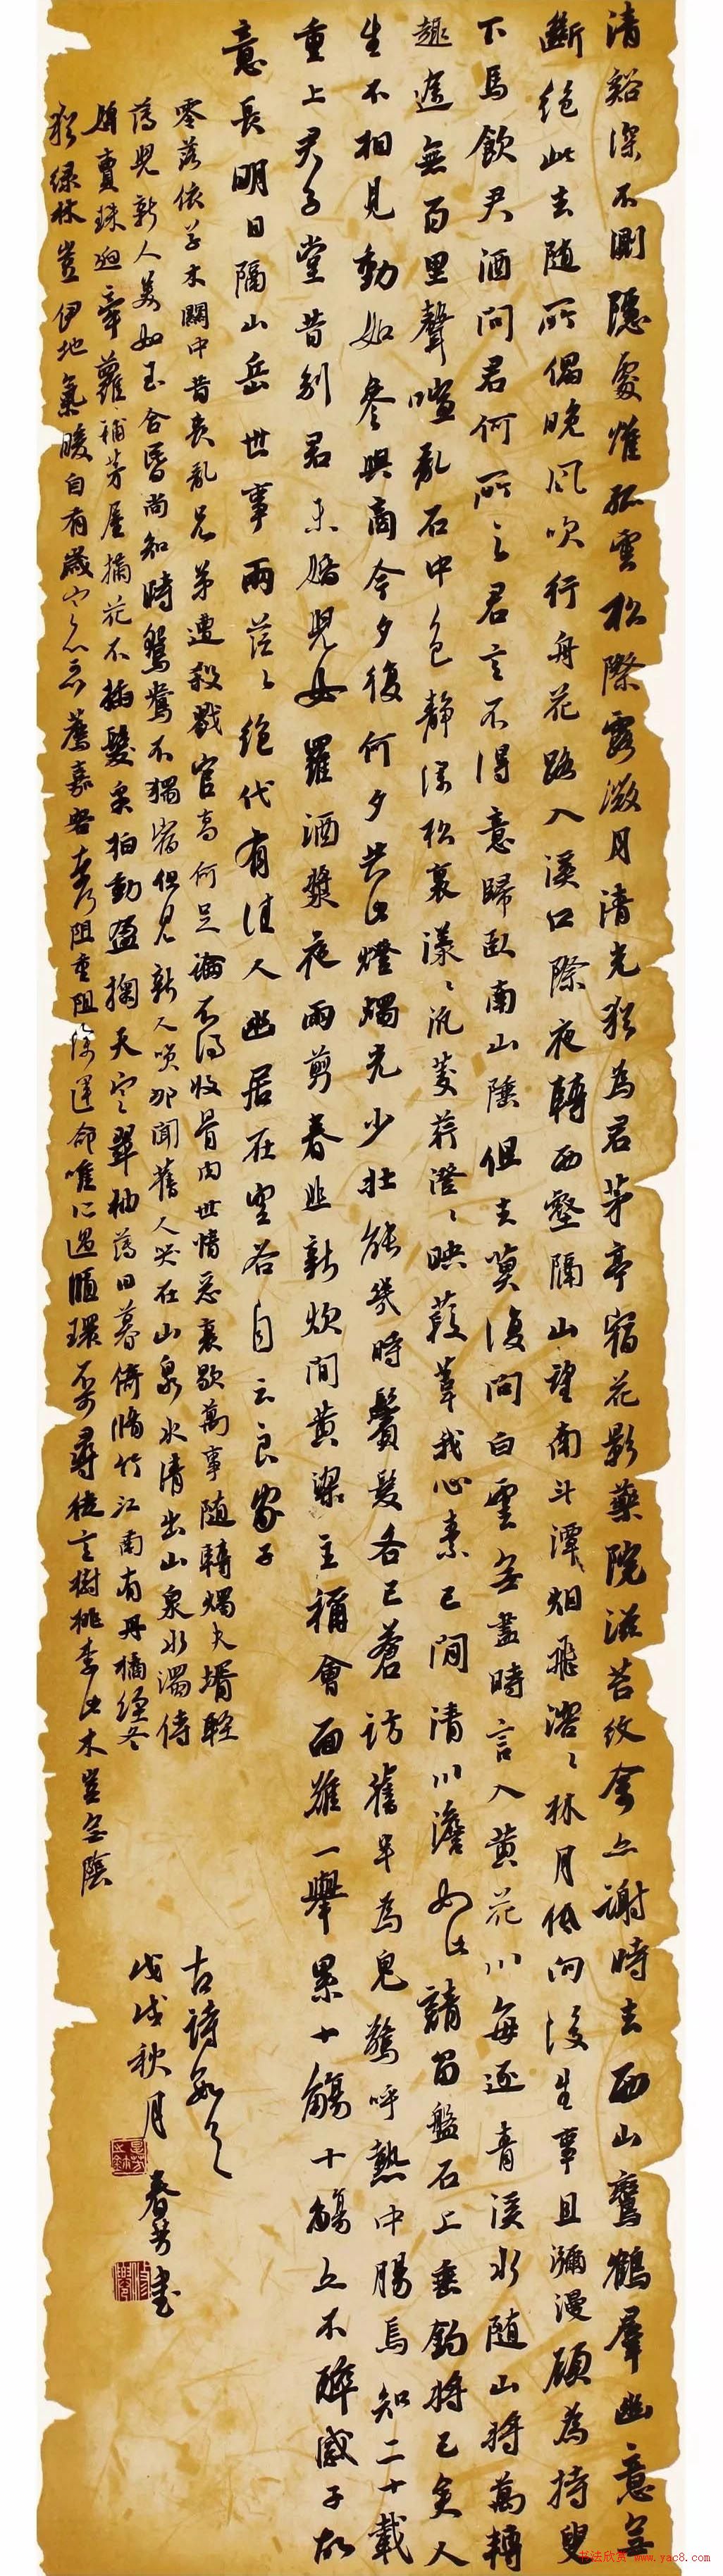 清谿深不測隱處惟孤雲松際露微月清光猶為君茅亭宿花影藥院滋苔紋余亦謝時去西山鸞鶴群幽意無
斷絕此去隨所偶晚風吹行舟花路入溪口際夜轉西壑隔山望南斗潭烟飛溶溶林月低向後生事且瀰漫願為持竿叟
下馬飲君酒問君何所之君言不得意歸臥南山陲但去莫復問白雲無盡時言入黃花川每逐青溪水隨山將萬轉
趣途無百里聲喧亂石中色靜深松裏漾漾汎菱荇澄澄映葭葦我心素已閒清川澹如此請留盤石上垂釣將已矣人
生不相見動如參與商今夕復何夕共此燈燭光少壯能幾時鬢髮各已蒼訪舊半為鬼驚呼熱中腸焉知二十載
重上君子堂昔別君未婚兒女羅酒漿夜雨剪春韭新炊間黃粱主稱會面難一舉累十觴十觴亦不醉感子故
意長明日隔山岳世事兩茫茫絕代有佳人幽居在空谷自云良家子
零落依草木關中昔喪亂兄弟遭殺戮官高何足論不得收骨肉世情惡衰歇萬事隨轉燭夫壻輕
薄兒新人美如玉合昏尚知時鴛鴦不獨宿但見新人笑那聞舊人哭在山泉水清出山泉水濁侍
婢賣珠迴牽蘿補茅屋摘花不插髮采柏動盈掬天寒翠袖薄日暮倚脩竹江南有丹橘經冬
猶綠林豈伊地氣暖自有歲寒心可以薦嘉客奈何阻重深運命唯所遇循環不可尋徒言樹桃李此木豈無陰
古詩數首
戊戌秋月
春芳書
书法欣赏 www.yac8.com